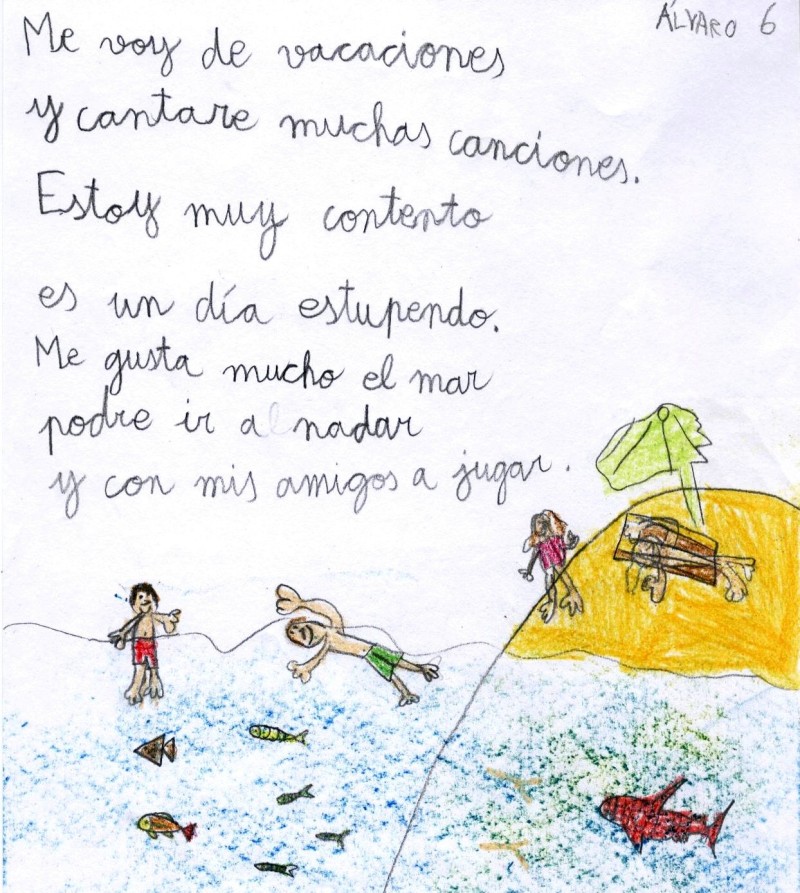 ÁLVARO 6
Me voy de vacaciones
y cantare muchas canciones.
Estoy muy contento
es un día estupendo.
Me gusta mucho el mar
podre ir a nadar
y con mis amigos a jugar.